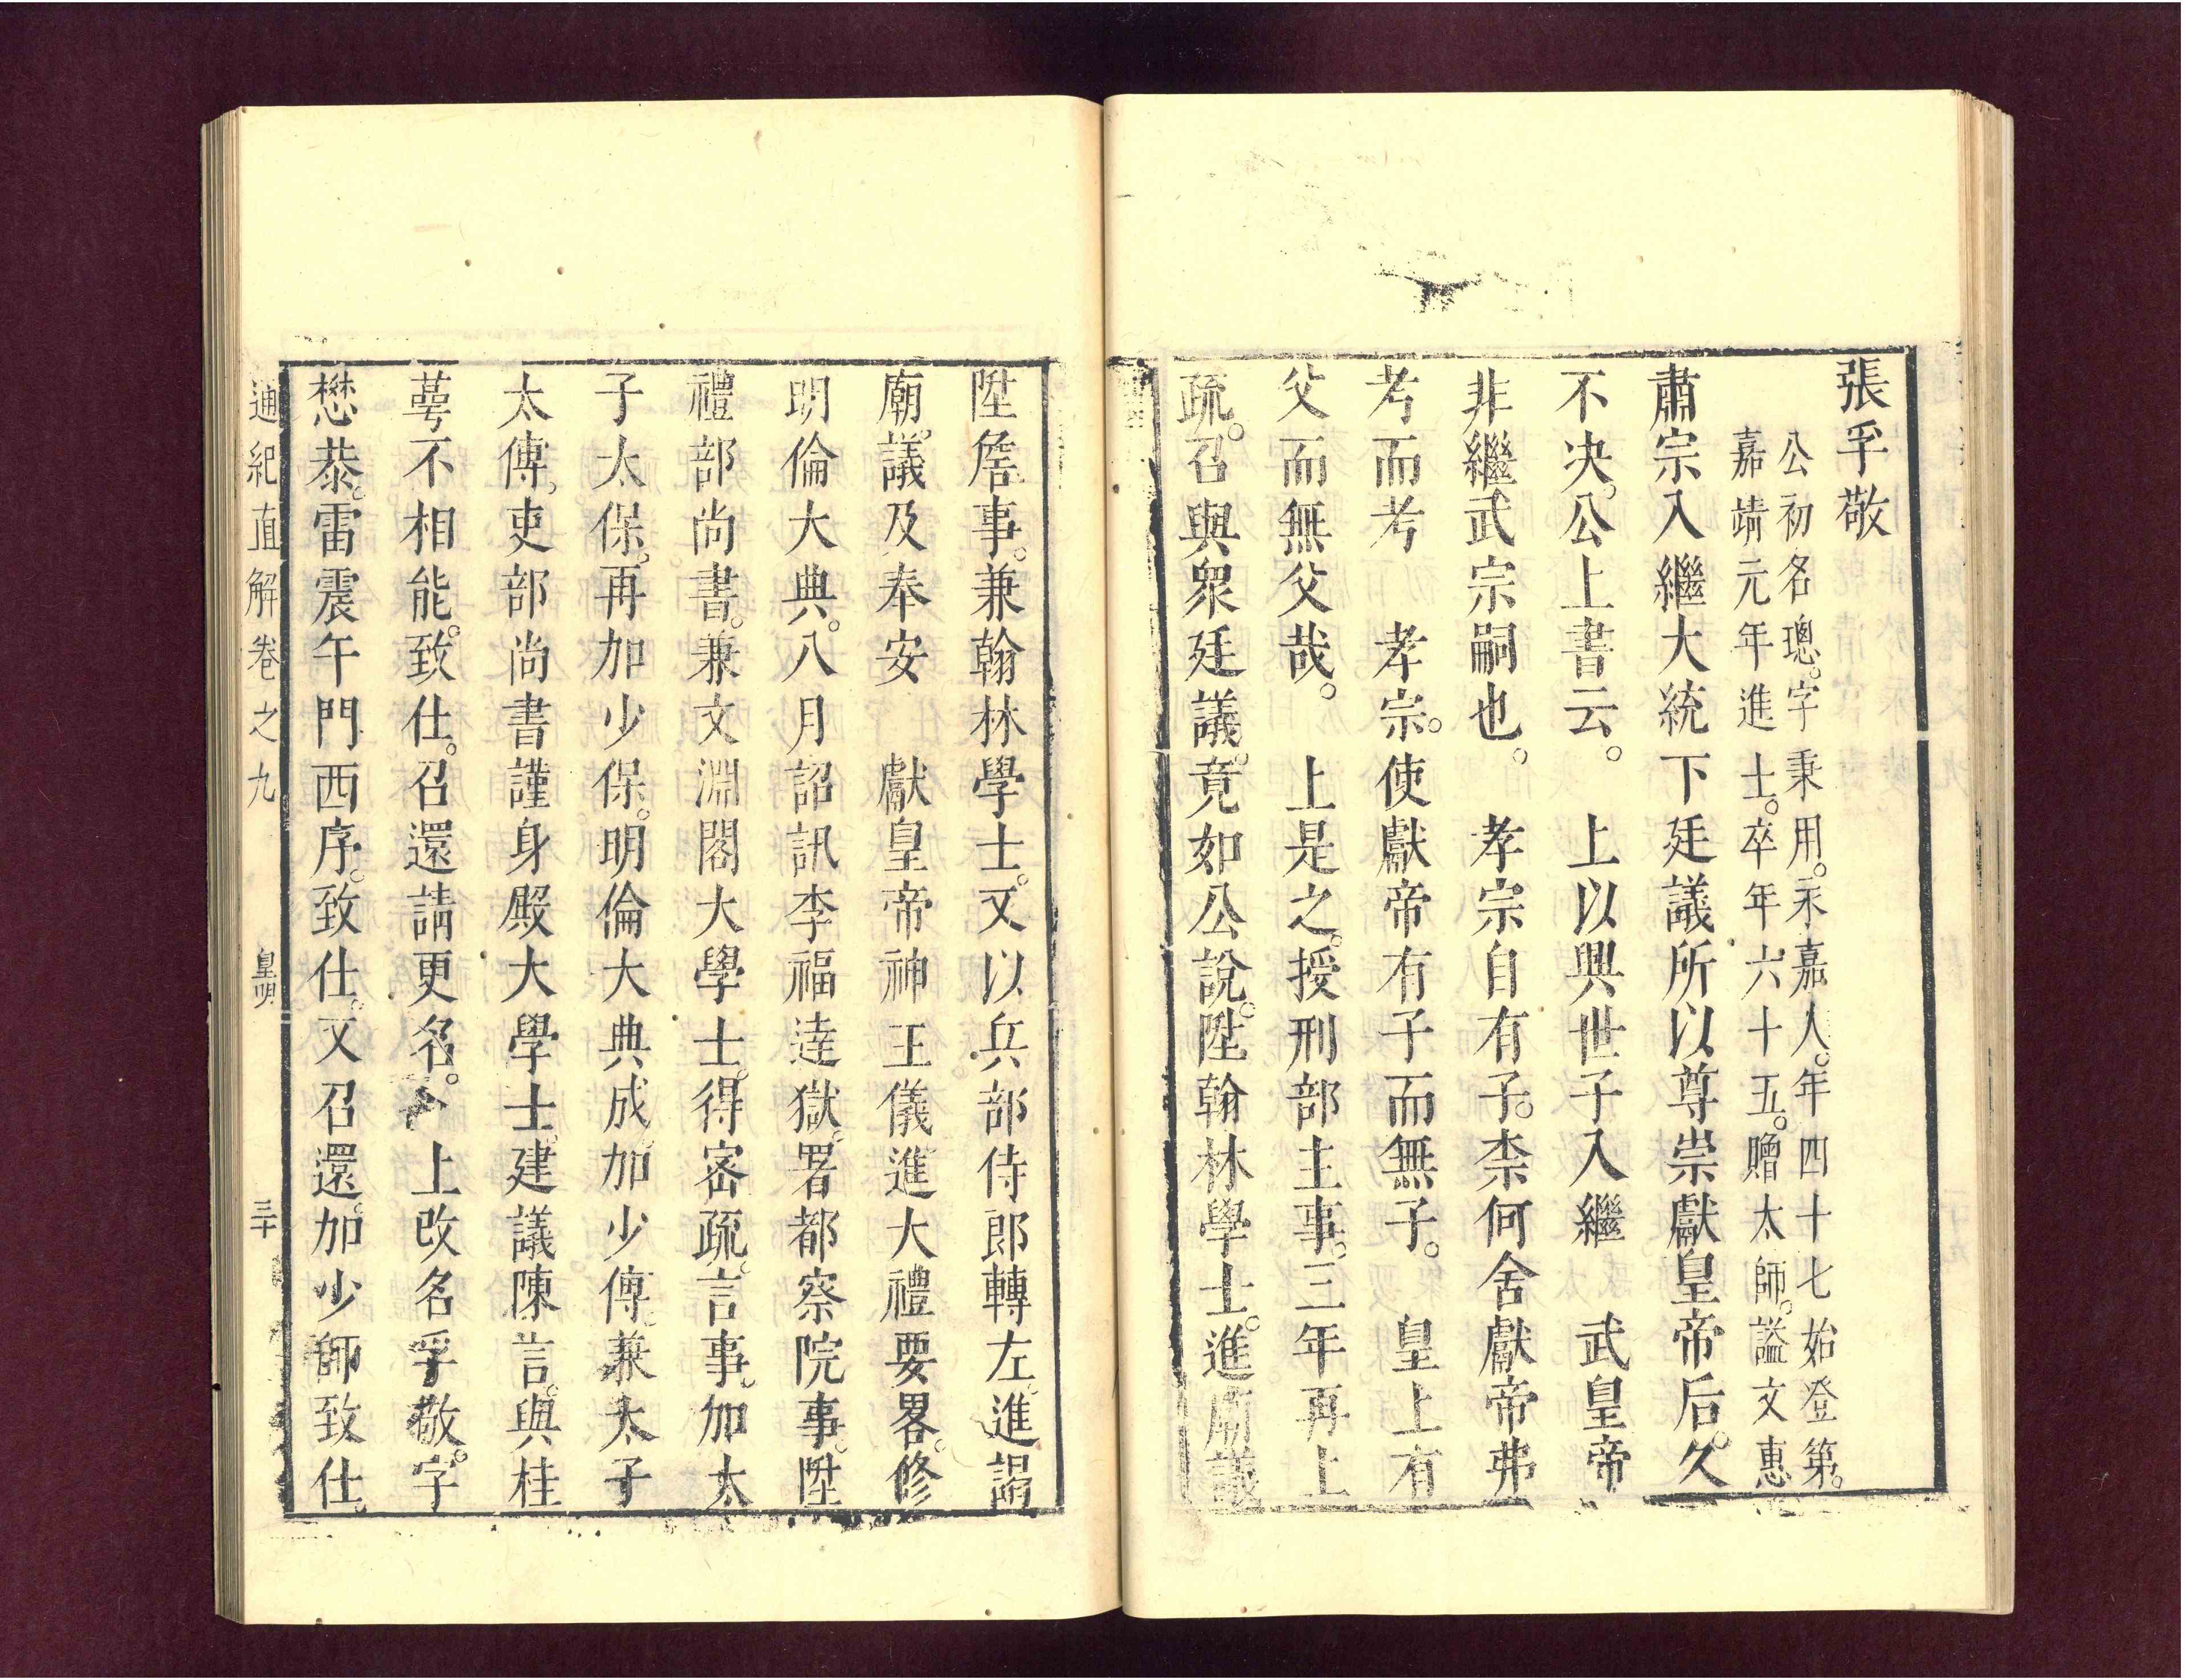 張孚敬
公初名璁。字秉用。永嘉人。年四十七始登第。
嘉靖元年進士。卒年六十五。贈太師。謚文惠
肅宗入繼大統下廷議所以尊崇獻皇帝后。久
不决。公上書云。　上以興世子入繼　武皇帝
非繼武宗嗣也。　孝宗自有子。柰何舍獻帝弗
考而考　孝宗。使獻帝有子而無子。　皇上有
父而無父哉。　上是之。授刑部主事。三年再上
疏。召與衆廷議。竟如公說。陞翰林學士。進廟議
陞詹事。兼翰林學士。又以兵部侍郎轉左。進謁
廟。議及奉安　獻皇帝神主儀進大禮要畧。修
明倫大典。八月詔訊李福達獄。署都察院事。陞
禮部尚書。兼文淵閣大學士。得密疏。言事。加太
子太保。再加少保。明倫大典成。加少傅。兼太子
太傅。吏部尚書謹身殿大學士。建議陳言。與桂
萼不相能。致仕。召還請更名。　上改名孚敬。字
懋恭。雷震午門西序。致仕。又召還。加少師致仕。
通紀直解卷之九　皇明　三十